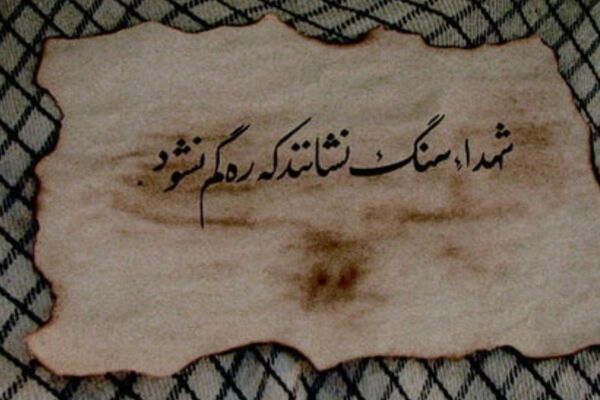 شهداء سنگ نشانند که ره گم نشود